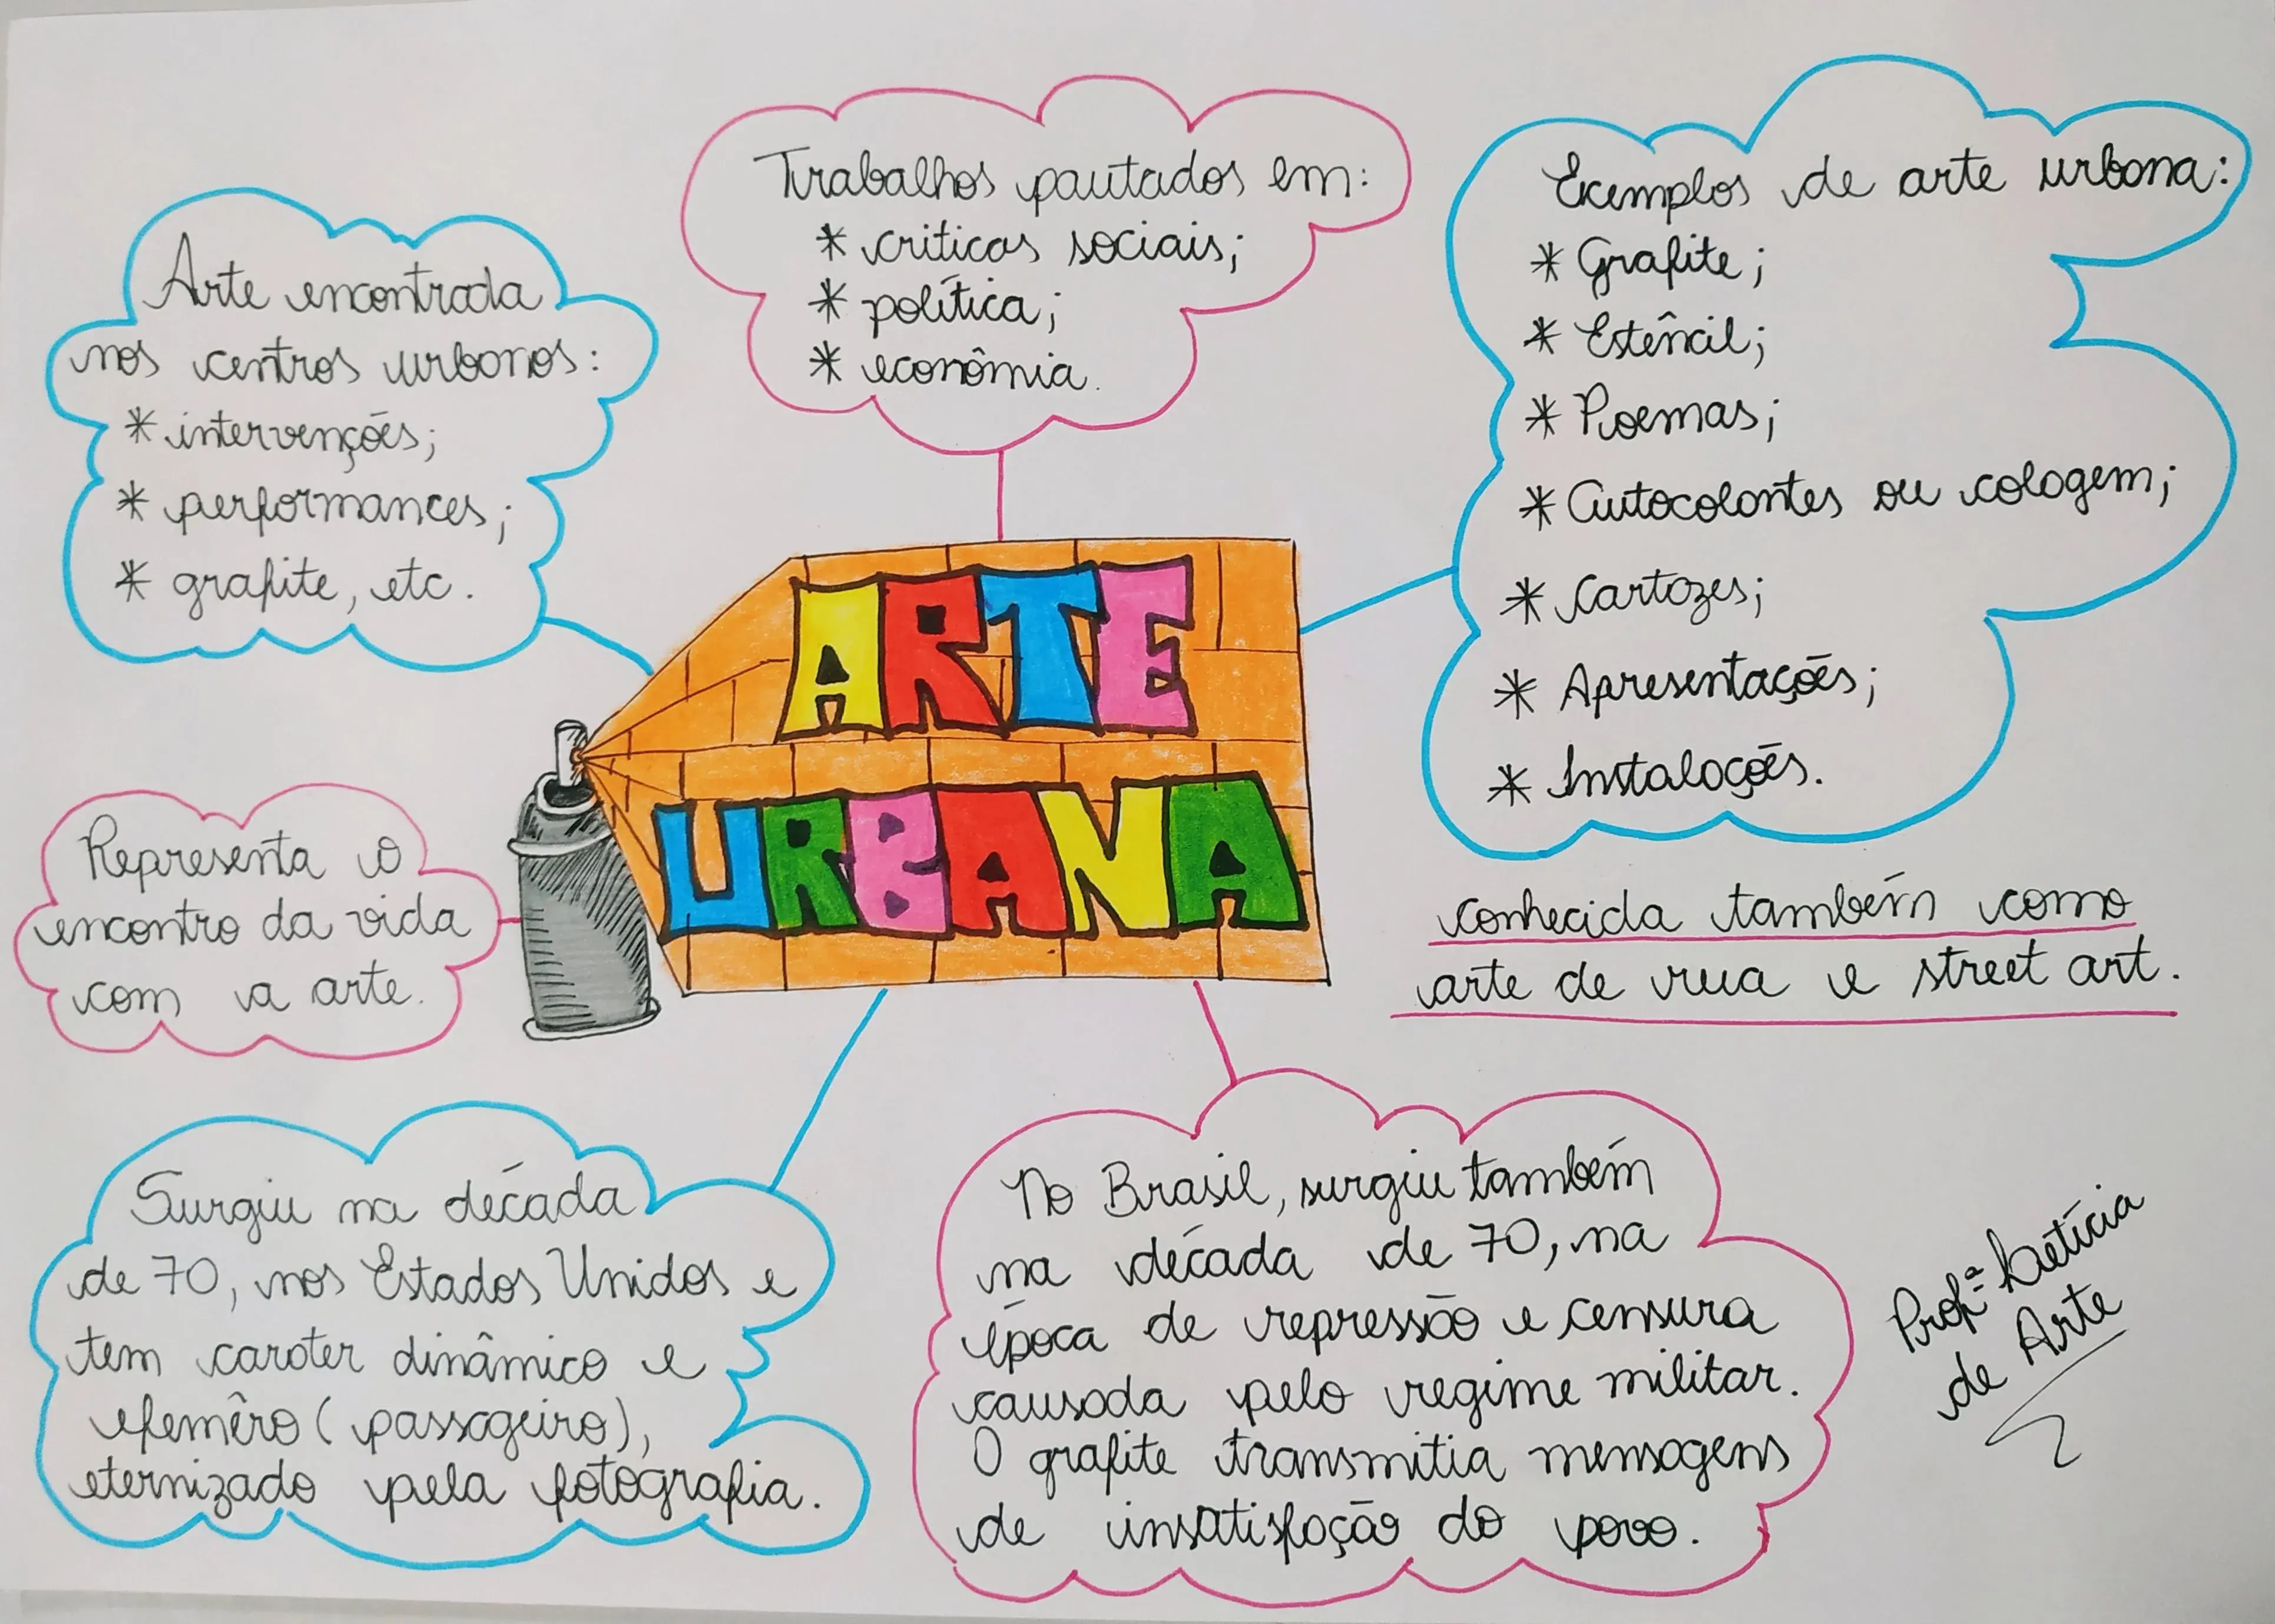 Arte encontrada
nos centros urbanos:
* intervenções;
* performances;
* grafite, etc.
Trabalhos pautados em:
* criticas sociais;
* política;
* econômia.
Exemplos de arte urbana:
* Grafite;
* Estêncil;
* Poemas;
* Autocolantes ou colagem;
* Cartazes;
* Apresentações;
* Instalações.
ARTE
URBANA
Representa o
encontro da vida
com a arte.
conhecida também como
arte de rua e street art.
Surgiu na década
de 70, nos Estados Unidos e
tem carater dinâmico e
efemêro (passageiro),
eternizado pela fotografia.
No Brasil, surgiu também
na década de 70, na
época de repressão e censura
causada pelo regime militar.
O grafite transmitia mensagens
de insatisfação do povo.
Profª Letícia
de Arte